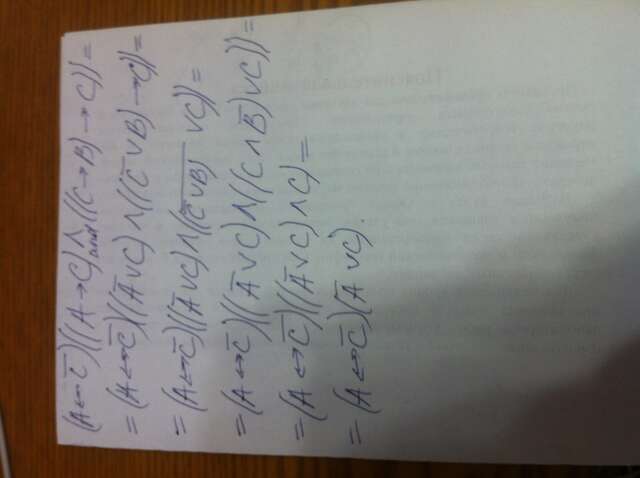 (A↔C̅)((A→C)∧((C→B)→C))=
=(A↔C̅)((A̅∨C)∧((C̅∨B)→C))=
=(A↔C̅)((A̅∨C)∧(\overline{(C̅∨B)}∨C))=
=(A↔C̅)((A̅∨C)∧((C∧B̅)∨C))=
=(A↔C̅)((A̅∨C)∧C)=
=(A↔C̅)(A̅∨C).